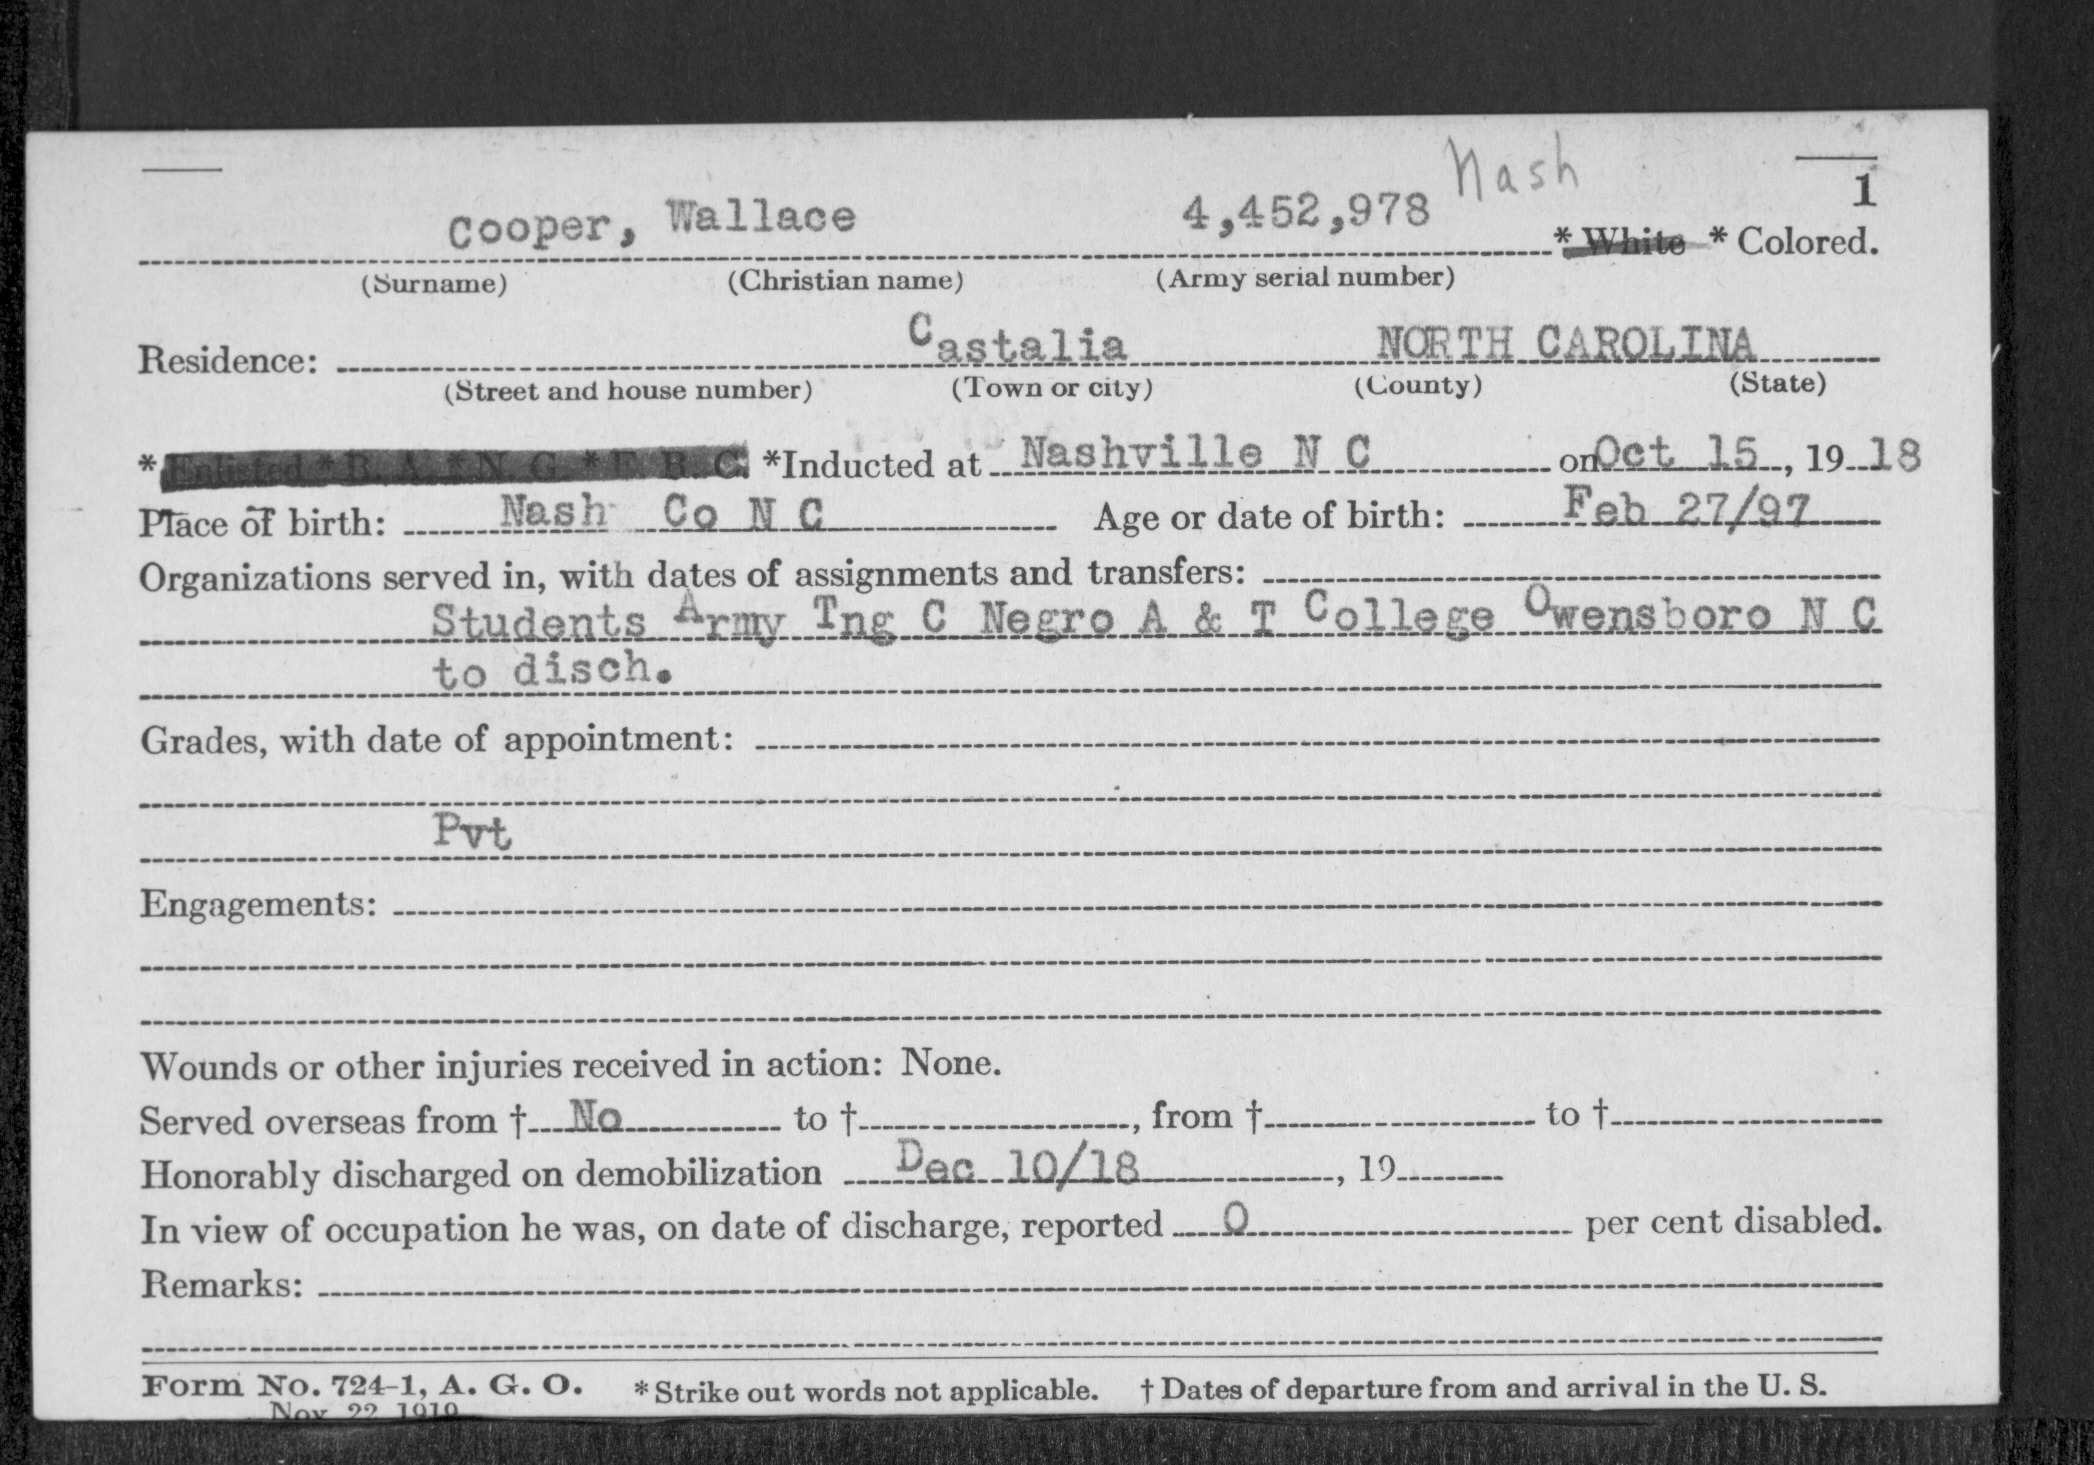 Nash
1
Cooper, Wallace 4,452,978 * White * Colored.
(Surname) (Christian name) (Army serial number)
Residence: Castalia NORTH CAROLINA
(Street and house number) (Town or city) (County) (State)
* Enlisted * R. A. * N. G. * E. R. C. *Inducted at Nashville N C on Oct 15, 19 18
Place of birth: Nash Co N C Age or date of birth: Feb 27/97
Organizations served in, with dates of assignments and transfers:
Students Army Tng C Negro A & T College Owensboro N C
to disch.
Grades, with date of appointment:
Pvt
Engagements:
Wounds or other injuries received in action: None.
Served overseas from † No to †, from † to †
Honorably discharged on demobilization Dec 10/18, 19
In view of occupation he was, on date of discharge, reported 0 per cent disabled.
Remarks:
Form No. 724-1, A. G. O. * Strike out words not applicable. † Dates of departure from and arrival in the U. S.
Nov. 22 1919